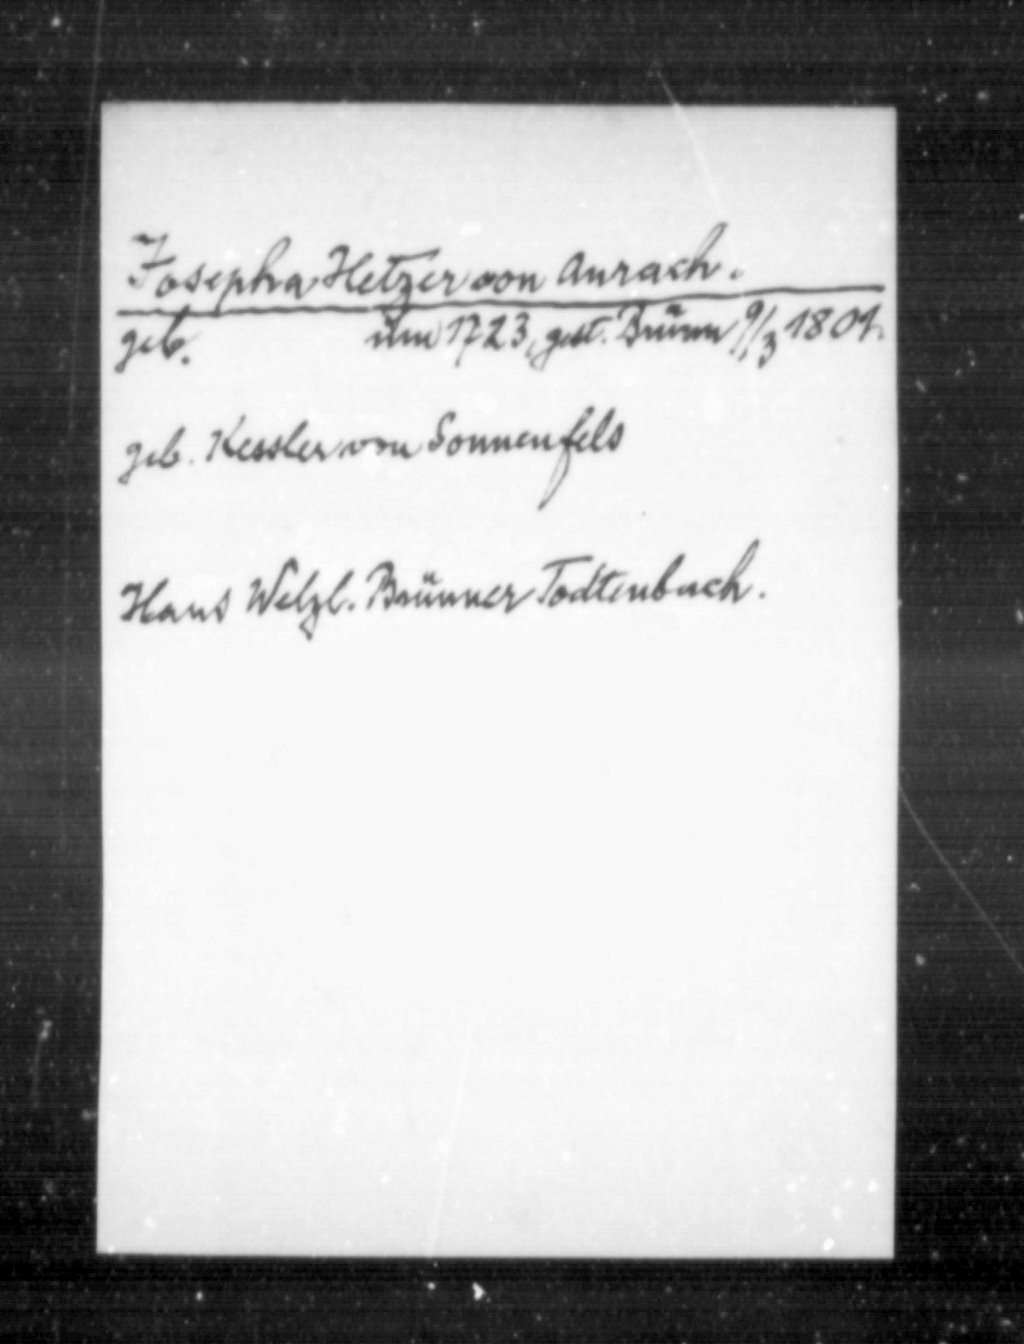 Josepha Hetzer von Aurach.
geb. um 1723, gest. Brünn 9/3 1801.
geb. Kessler von Sonnenfels
Hans Welzl. Brünner Todtenbuch.